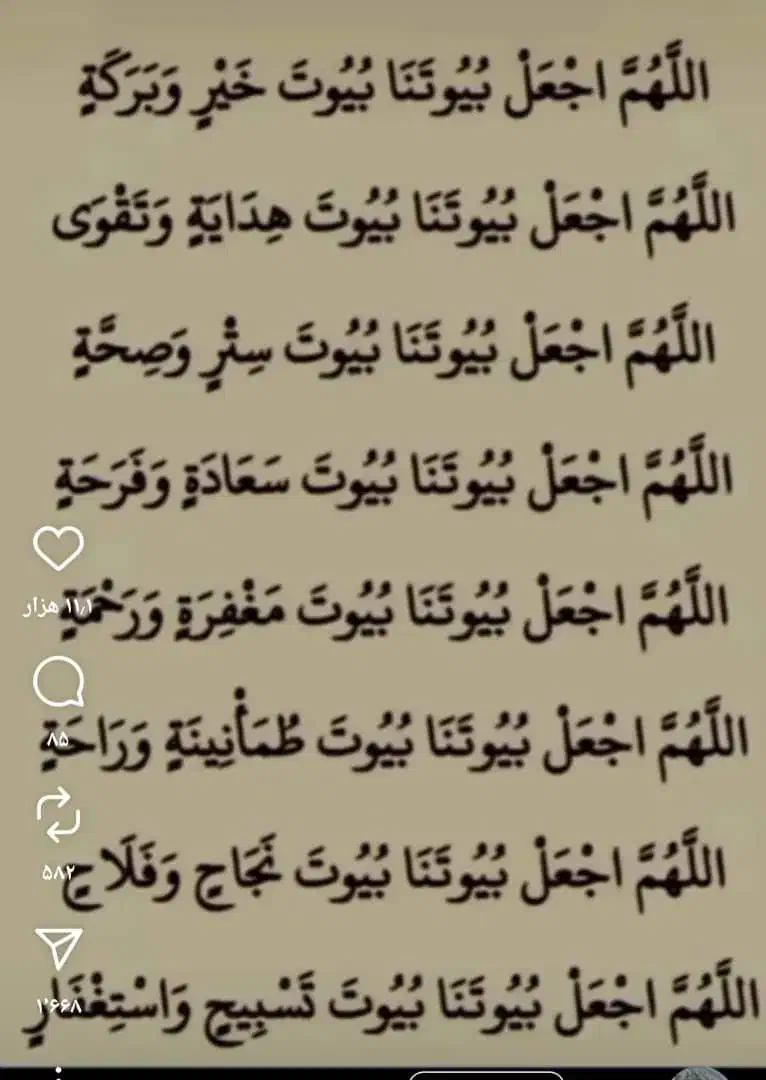 اللَّهُمَّ اجْعَلْ بُيُوتَنَا بُيُوتَ خَيْرٍ وَبَرَكَةٍ
اللَّهُمَّ اجْعَلْ بُيُوتَنَا بُيُوتَ هِدَايَةٍ وَتَقْوَى
اللَّهُمَّ اجْعَلْ بُيُوتَنَا بُيُوتَ سِتْرٍ وَصِحَّةٍ
اللَّهُمَّ اجْعَلْ بُيُوتَنَا بُيُوتَ سَعَادَةٍ وَفَرَحَةٍ
اللَّهُمَّ اجْعَلْ بُيُوتَنَا بُيُوتَ مَغْفِرَةٍ وَرَحْمَةٍ
۱۱٫۱ هزار
اللَّهُمَّ اجْعَلْ بُيُوتَنَا بُيُوتَ طُمَأْنِينَةٍ وَرَاحَةٍ
۸۵
اللَّهُمَّ اجْعَلْ بُيُوتَنَا بُيُوتَ نَجَاحٍ وَفَلَاحٍ
۵۸۲
اللَّهُمَّ اجْعَلْ بُيُوتَنَا بُيُوتَ تَسْبِيحٍ وَاسْتِغْفَارٍ
۱٬۶۶۸